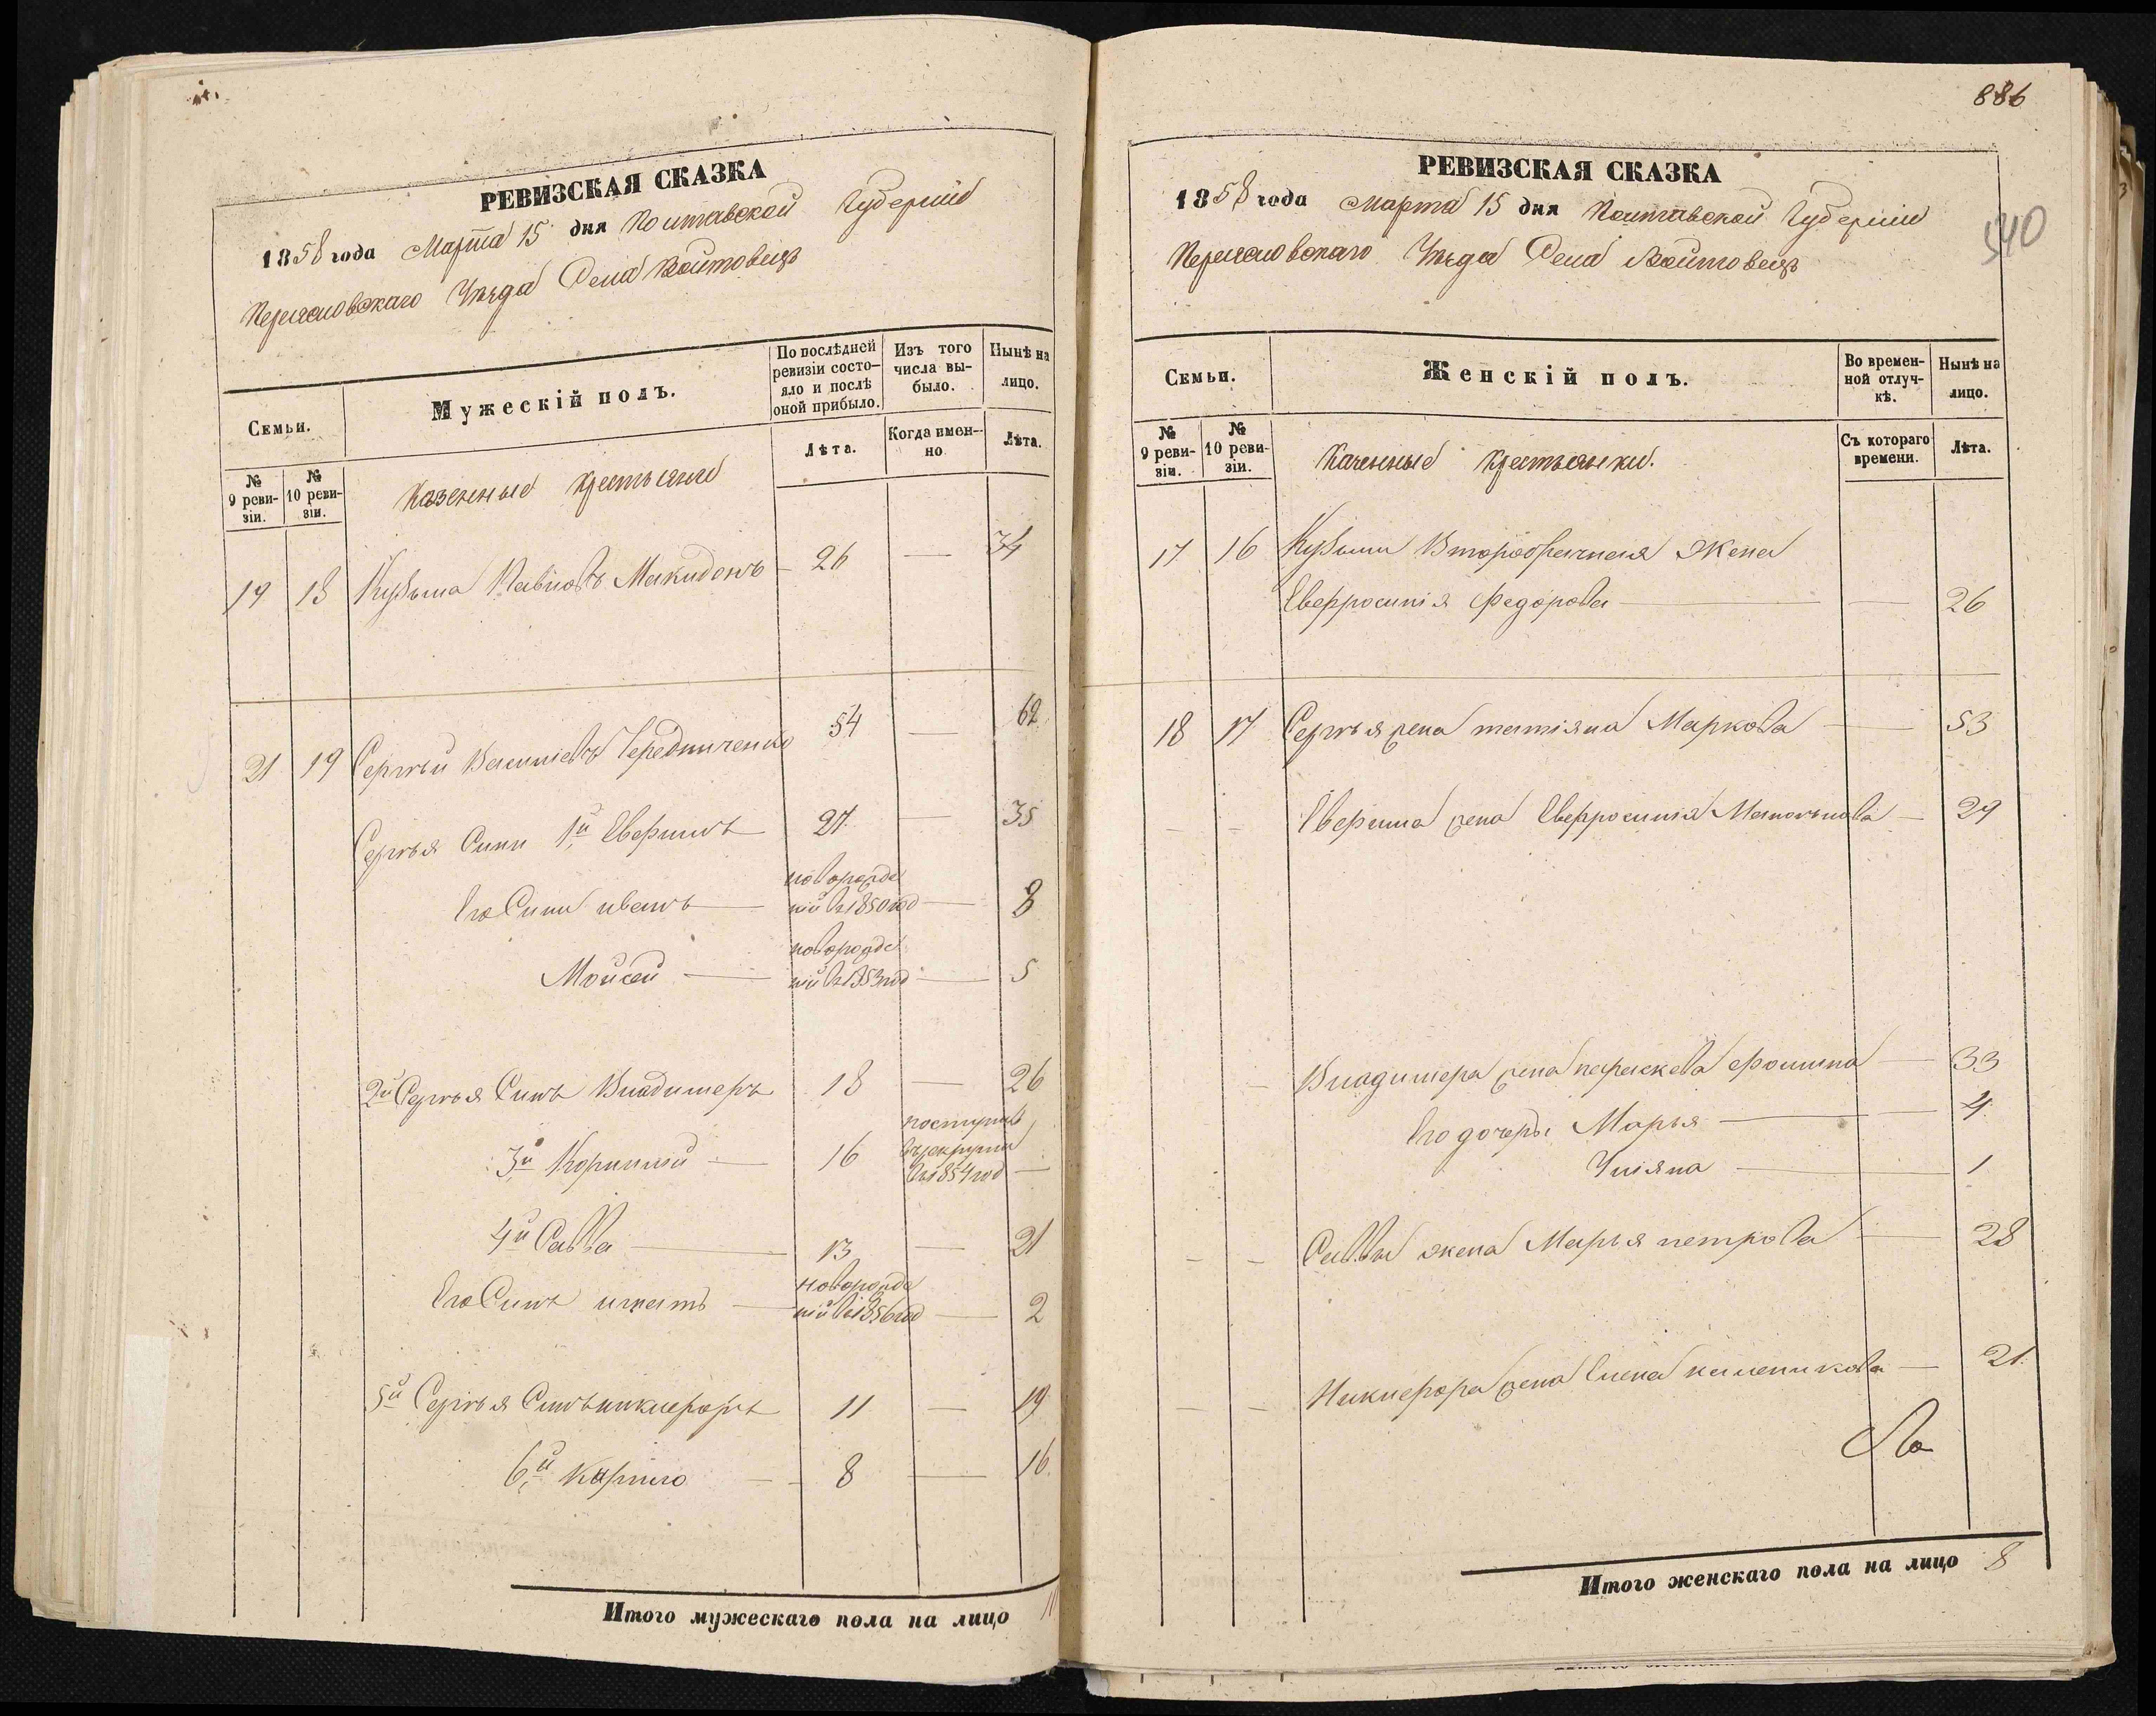 РЕВИЗСКАЯ СКАЗКА
1858 года Марта 15 дня Полтавской Губерніи
Переяславскаго Уѣзда Села Войтовецъ
Семьи.
Мужескій полъ.
По послѣдней ревизіи состо-
яло и послѣ
оной прибыло.
Изъ того
числа вы-
было.
Нынѣ на
лицо.
№
9 реви-
зіи.
№
10 реви-
зіи.
Казенные крестьяне
Лѣта.
Когда имен-
но
Лѣта.
19 18 Кузьма Павловъ Макидонъ — 26 — 34
21 19 Сергѣй Василіевъ Чередниченко 54 — 62
Сергѣя Сыны 1й Евфимъ 27 — 35
Его Сыны иванъ — новорожде
ній въ 1850 год — 8
Мойсей — новорожде
ній въ 1853 год — 5
2й Сергѣя Сынъ Владимеръ 18 — 26
3й Корнилій — 16 поступилъ
въ рекруты
въ 1854 год —
4й Савва — 13 — 21
Его Сынъ игнатъ — новорожде
ній въ 1856 год — 2
5й Сергѣя Сынъ никифоръ 11 — 19
6й Карпо — 8 — 16
Итого мужескаго пола на лицо 11
886
340
РЕВИЗСКАЯ СКАЗКА
1858 года марта 15 дня Полтавской Губерніи
Переяславскаго Уѣзда Села Войтовецъ
Семьи.
Женскій полъ.
Во времен-
ной отлуч-
кѣ.
Нынѣ на
лицо.
№
9 реви-
зіи.
№
10 реви-
зіи.
Казенные крестьянки.
Съ котораго
времени.
Лѣта.
17 16 Кузьмы Второбрачная Жена
Евфросинія Федорова — — 26
18 17 Сергѣя жена татіяна Маркова — 53
— — Евфима жена Евфросинія — 29
— Владимера жена параскева фомина — 33
Его дочеры Марья — — 4
Уліяна — 1
— — Саввы жена Марья петрова — 28
— — Никифора жена Елена — 21
Итого женскаго пола на лицо 8